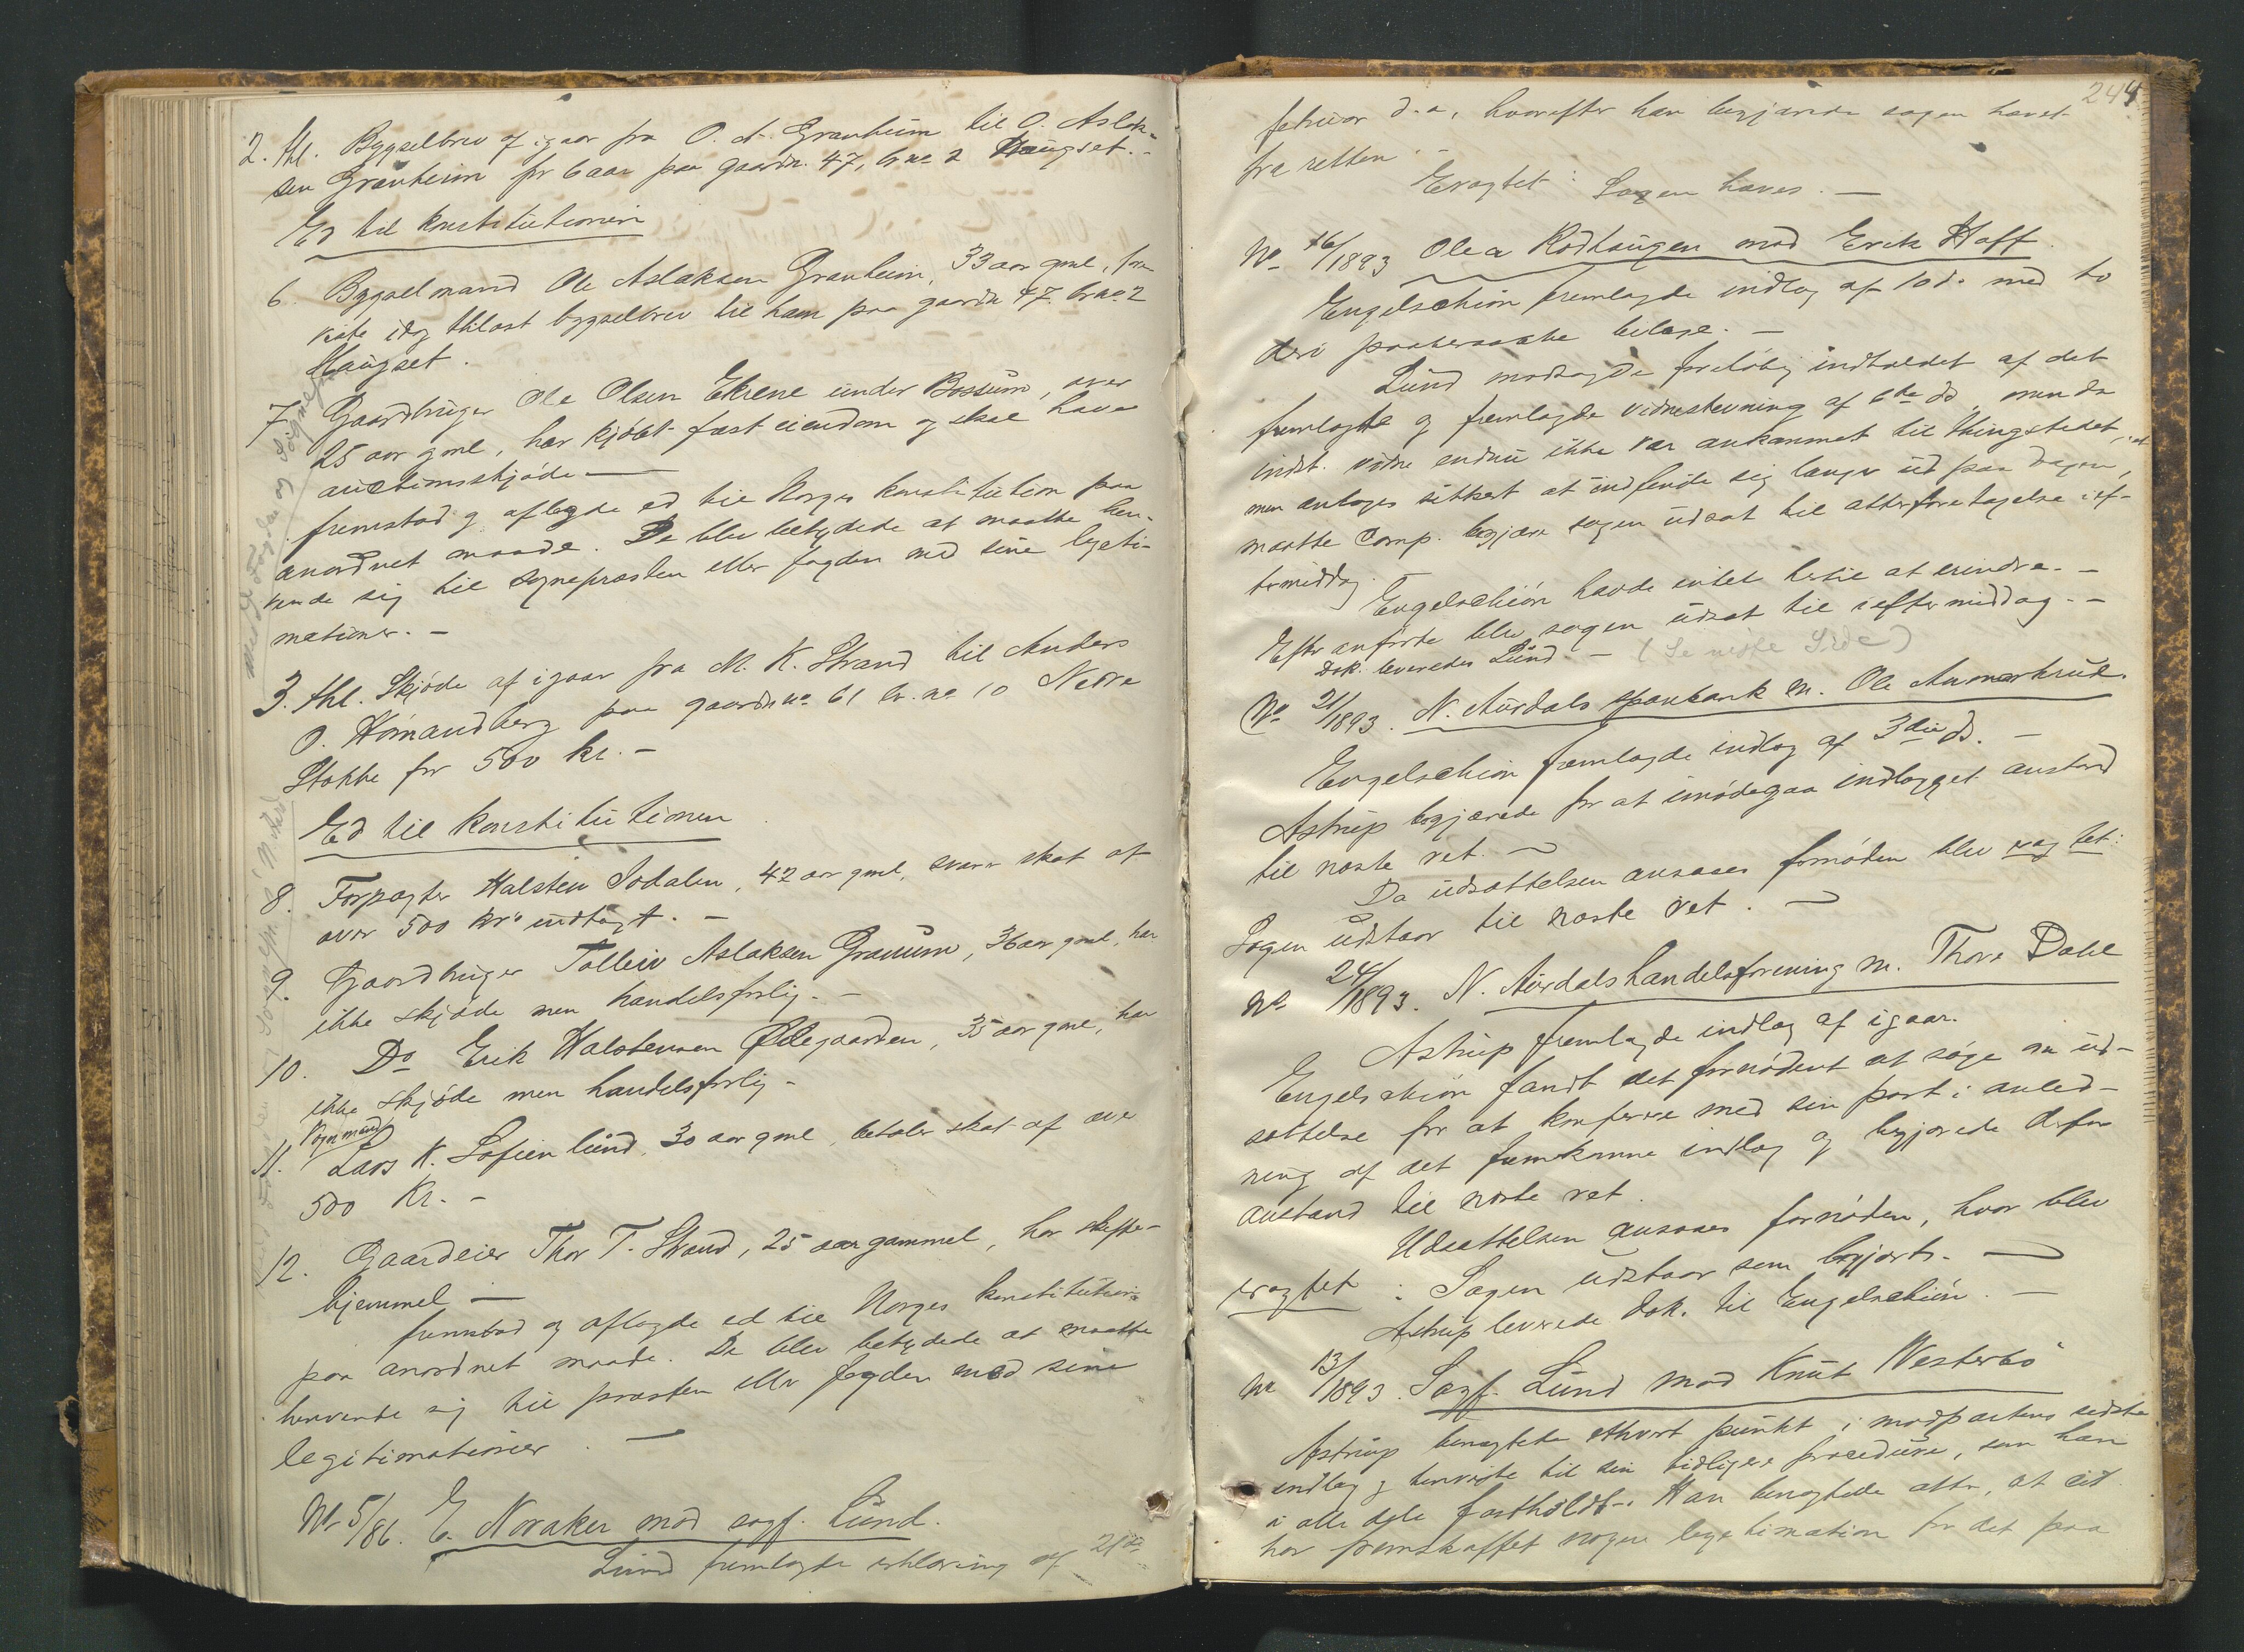 2. thl. Bygselbrev af igaar fra O. A. Granheim til O. Aslak-
sen Granheim for 6 aar paa gaardn. 47, br.no 2 Haugset. -
Ed til konstitutionen
6. Bygselmand Ole Aslaksen Granheim, 33 aar gml, fore-
viste idag thilæst bygselbrev til ham paa gaardn 47. br.no. 2
Haugset.
7. Gaardbruger Ole Olsen Ekrene under Bossum, over
25 aar gml, har kjöbt fast eiendom og skal have
auctionsskjöde —
fremstod og aflagde ed til Norges konstitution paa
anordnet maade. De blev betydede at maatte hen-
vende sig til sognepræsten eller fogden med sine legiti-
mationer. -
3. thl. Skjöde af igaar fra M. K. Strand til Anders
O. Hómandberg paa gaardn no 61 br. no 10 Nedre
Stokke for 500 kr. -
Ed til konstitutionen
8. Forpagter Halsten Sodalen, 42 aar gml, svarer skat af
over 500 kr. indtægt. -
9. Gaardbruger Tolleiv Aslaksen Granum, 36 aar gml, har
ikke skjöde men handelsforlig. -
10. Do Erik Halstensen Ødegaarden, 35 aar gml, har
ikke skjöde men handelsforlig -
Vognmand
11. Lars K. Sofienlund, 30 aar gml, betaler skat af over
500 Kr. -
12. Gaardeier Thor T. Strand, 25 aar gammel, har skifte-
hjemmel —
fremstod og aflagde ed til Norges konstitution
paa anordnet maade. De blev betydede at maatte
henvende sig til præsten eller fogden med sine
legitimationer. —
No 5/86. E. Noraker mod sagf. Lund.
Lund fremlagde erklæring af 21de
244
februar d. a, hvorefter han begjærede sagen hævet
fra retten. -
Eragtet: Sagen hæves. —
No 16/1893 Olea Rodhaugen mod Erik Hoff.
Engelschiön fremlagde indlæg af 10 d. med to
deri paaberaabte bilage. -
Lund modtagde foreløbig indholdet af det
fremlagte og fremlagde vidnestevning af 6te ds, men da
indst. vidne endnu ikke var ankommet til thingstedet,
men antages sikkert at indfinde sig længer ud paa dagen,
maatte Comp. begjære sagen udsat til atterforetagelse i ef-
termiddag.
Engelschiön havde intet hertil at erindre. -
Efter anførte blev sagen udsat til i eftermiddag. -
Dok. leveredes Lund - (Se næste Side)
No 21/1893. N. Aurdals sparebank m. Ole Aamerkrud.
Engelschiön fremlagde indlæg af 3die ds. -
Astrup begjærede for at imødegaa indlægget anstand
til næste ret. -
Da udsættelsen ansaaes fornöden blev eragtet:
Sagen udstaar til næste ret. -
No 24/1893. N. Aurdals handelsforening m. Thore Dahl
Astrup fremlagde indlæg af igaar.
Engelschiön fandt det fornödent at söge en ud-
sættelse for at konferere med sin part i anled-
ning af det fremkomne indlæg og begjærede derfor
anstand til næste ret.
Udsættelsen ansaaes fornöden, hvor blev
eragtet: Sagen udstaar som begjært. —
Astrup leverede dok. til Engelschiön. —
No 13/1893. Sagf. Lund mod Knut Westerbö
Astrup benægtede ethvert punkt i modpartens sidste
indlæg og henviste til sin tidligere procedure, som han
i alle dele fastholdt. Han benægtede atter, at cit
har fremskaffet nogen legitimation for det paa